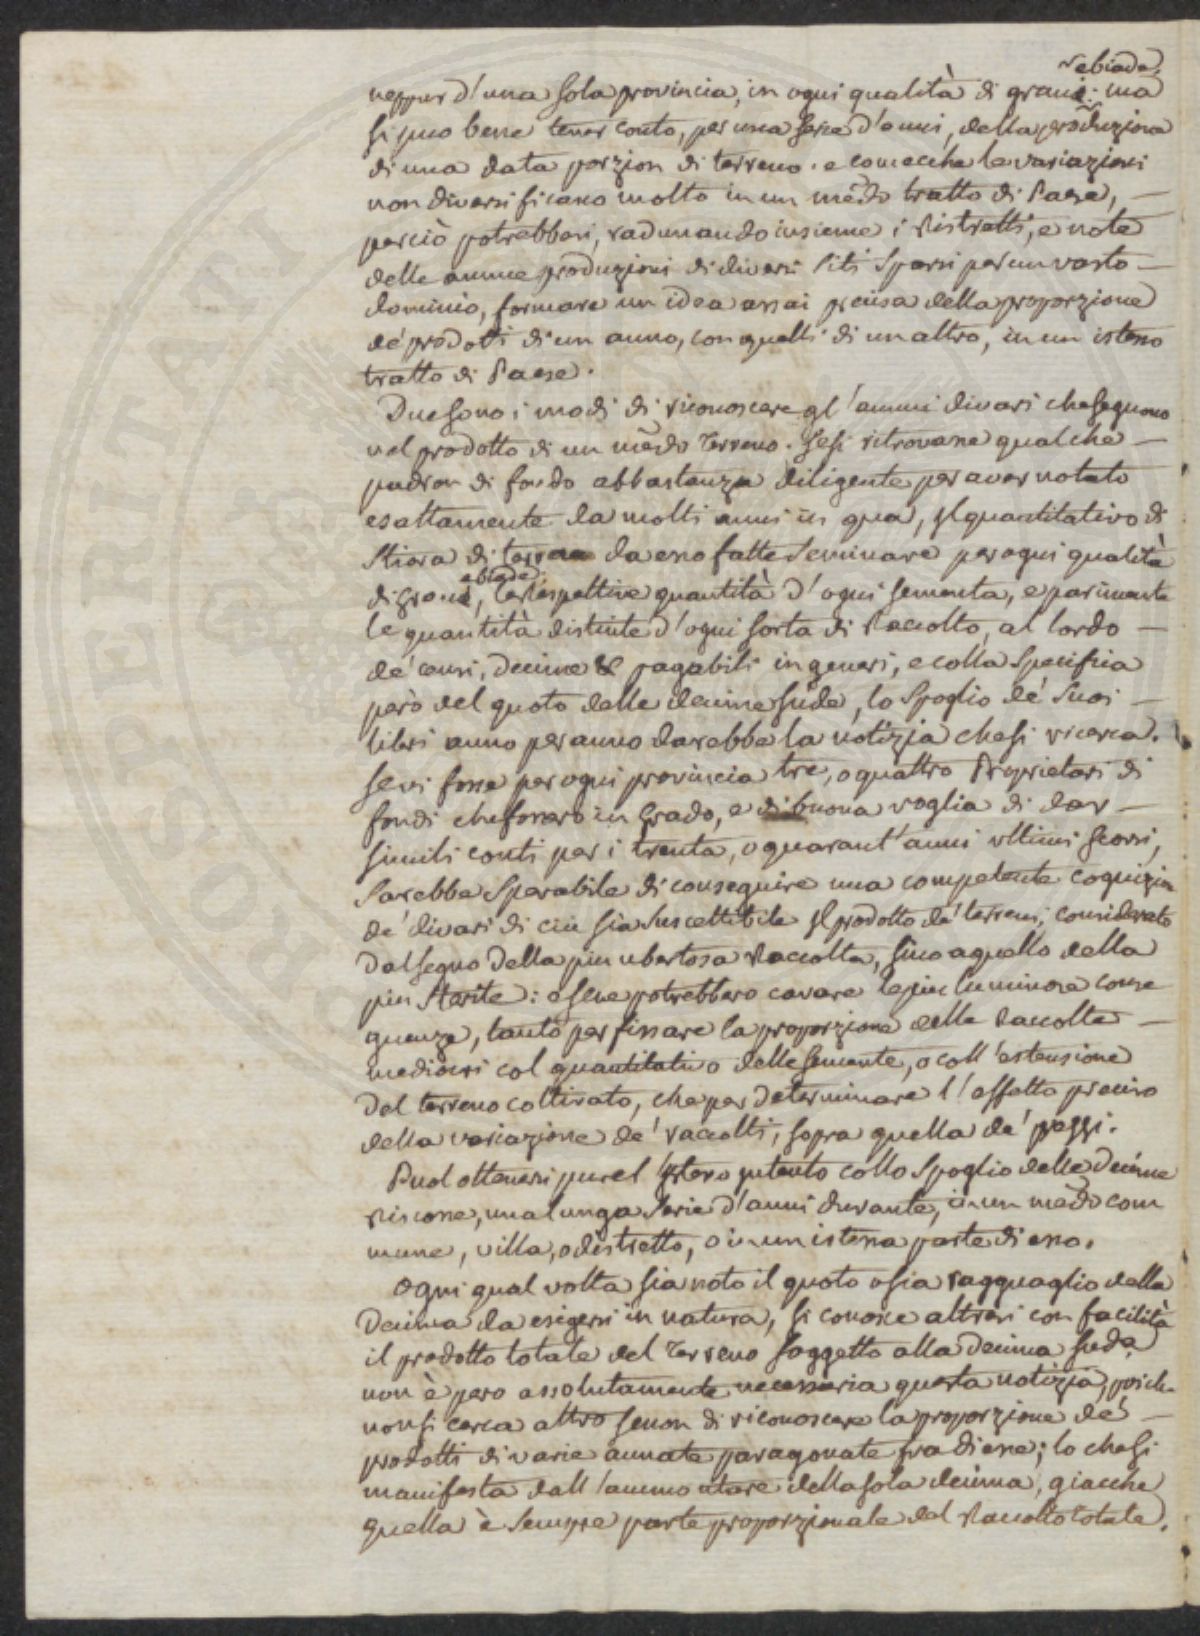 e biade
neppur d'una sola provincia, in ogni qualità di grani: ma
si puo bene tener conto, per una serie d'anni, della produzione
di una data porzion di terreno. e comecche le variazioni
non diversificano molto in un mēdo tratto di Paese, —
perciò potrebbesi, radunando insieme i Ristretti, e note
delle annue produzioni di diversi siti sparsi per un vasto —
dominio, formare un idea assai precisa della proporzione
de' prodotti di un anno, con quelli di un altro, in un istesso
tratto di Paese.
Due sono i modi di riconoscere gl'annui divari che seguono
nel prodotto di un mēdo Terreno. Se si ritrovasse qualche —
padron di fondo abbastanza diligente per aver notato
esattamente da molti anni in qua, il quantitativo di
Stiora di terra da esso fatte seminare per ogni qualità
e biade
di grani, le rispettive quantità d'ogni sementa, e parimente
le quantità distinte d'ogni sorta di Raccolto, al lordo —
de' censi, decime &c pagabili in generi, e colla specifica
però del quoto delle decime sud.e, lo Spoglio de' suoi —
libri anno per anno darebbe la notizia che si ricerca.
Se vi fosse per ogni provincia tre, o quattro Proprietari di
fondi che fossero in Grado, e di buona voglia di dar —
simili conti per i trenta, o quarant'anni ultimi scorsi,
Sarebbe sperabile di conseguire una competente cognizion
de' divari di cui sia suscettibile il prodotto de' terreni, considerato
dal segno della piu ubertosa Raccolta, sino a quello della
piu sterile: e se ne potrebbero cavare le piu luminose conse
guenze, tanto per fissare la proporzione delle Raccolte —
mediocri col quantitativo delle semente, o coll'estensione
del terreno coltivato, che per determinare l'effetto preciso
della variazione de' raccolti, sopra quella de' prezzi.
Puol ottenersi pure l'istesso intento collo Spoglio delle Decime
Riscosse, una lunga serie d'anni durante, in un mēdo com
mune, villa, o distretto, o in un istessa parte di esso.
Ogni qual volta sia noto il quoto o sia ragguaglio della
Decima da esigersi in natura, si conosce altresi con facilità
il prodotto totale del Terreno soggetto alla Decima sud.a
non è pero assolutamente necessaria questa notizia, poiche
non si cerca altro senon di riconoscere la proporzione de' —
prodotti di varie annate paragonate fra di esse; lo che si
manifesta dall'ammontare della sola decima, giacche
quella è sempre parte proporzionale del Raccolto totale.